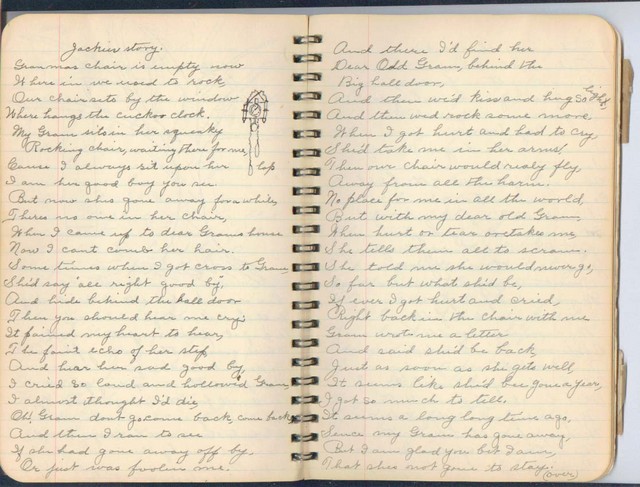 Jackies story.
Granmas chair is empty now
Where in we used to rock,
Our chair sets by the window
Where hangs the cuckoo clock.
My Gram sits in her squeaky
Rocking chair, waiting there for me
Cause I always sit upon her lap
I am her good boy you see.
But now shes gone away for a while,
Theres no one in her chair,
When I came up to dear Grams house
Now I cant comb her hair.
Some times when I got cross to Gram,
She'd say "all right good by,
And hide behind the hall door
Then you should hear me cry.
It pained my heart to hear,
The faint echo of her step,
And hear her sad good by,
I cried so loud and hollowed Gram,
I almost thought I'd die,
Oh! Gram dont go, come back, come back,
And then I ran to see
If she had gone away off by.
Or just was foolin me.
And there I'd find her
Dear Odd Gram, behind the
Big hall door,
And then we'd kiss and hug so tight,
And then wed rock some more,
When I got hurt and had to cry,
She'd take me in her arms,
Then our chair would realy fly,
Away from all the harm.
No place for me in all the world,
But with my dear old Gram,
When hurt or tear oretakes me,
She tells them all to scram.
She told me she would never go,
So far but what she'd be,
If ever I got hurt and cried,
Right back in the chair with me
Gram wrote me a letter
And said she'd be back,
Just as soon as she gets well,
It seems like she'd bee gone a year,
I got so much to tell.
It seems a long long time ago,
Since my Gram has gone away,
But I am glad you bet I am,
That shes not gone to stay.
(over)